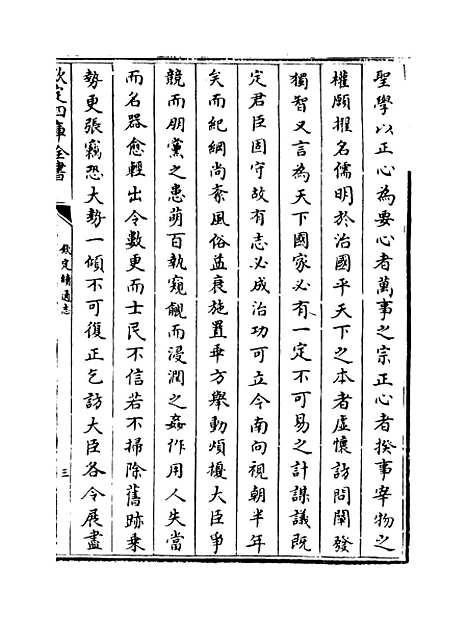 聖學以正心為要心者萬事之宗正心者揆事宰物之
權願擢名儒明於治國平天下之本者虛懷訪問闡發
獨智又言為天下國家必有一定不可易之計謀議既
定君臣固守故有志必成治功可立今南向視朝半年
矣而紀綱尚紊風俗益衰施置乖方舉動煩擾大臣爭
競而朋黨之患萌百執窺覦而浸潤之姦作用人失當
而名器愈輕出令數更而士民不信若不掃除舊跡乗
勢更張竊恐大勢一傾不可復正乞訪大臣各令展盡
欽定四庫全書
欽定續通志
三